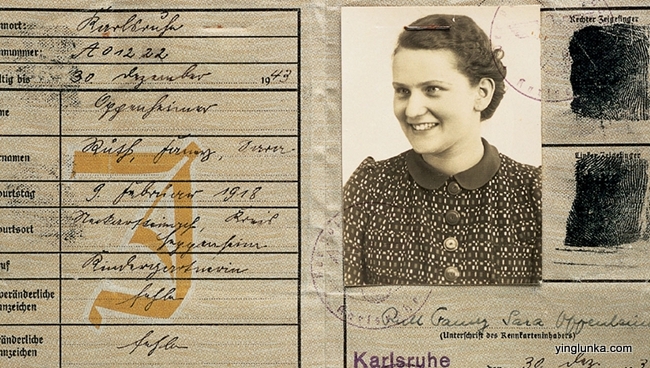 Karlsruhe
A 01222
30. Dezember 1943
Oppenheimer
Ruth, Fanny, Sara
9. Februar 1918
Kreis
Heppenheim
Kindergärtnerin
veränderliche
nnzeichen
fehlen
ränderliche
nnzeichen
fehlen
J
Rechter Zeigefinger
Linker Zeigefinger
Ruth Fanny Sara Oppenheim
(Unterschrift des Kennkarteninhabers)
Karlsruhe
30. Dez.
yinglunka.com